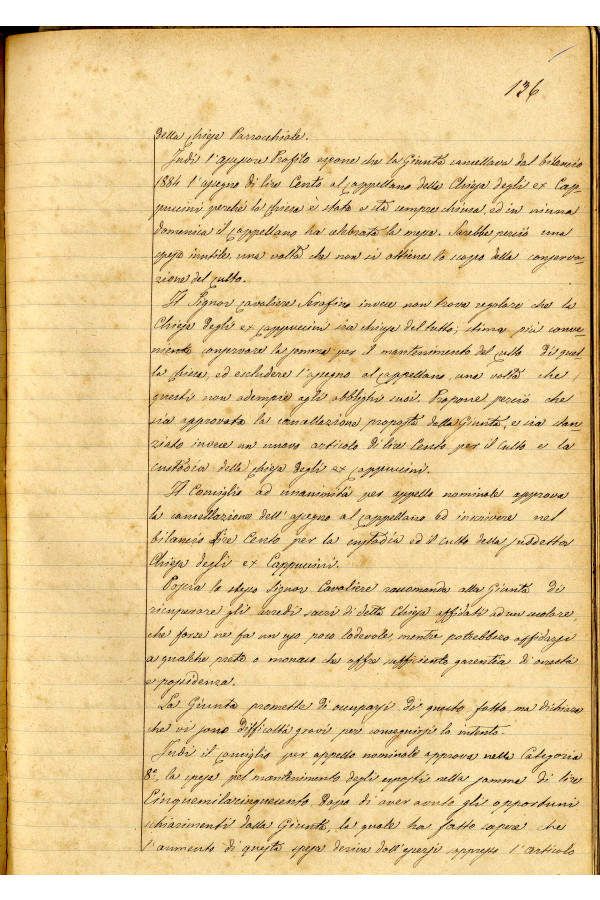 136
della Chiesa Parrocchiale.
Indi l'assessore Profilo espone che la Giunta cancellava dal bilancio
1884 l'assegno di lire Cento al Cappellano della Chiesa degli ex Cap-
puccini perché la chiesa è stata e sta sempre chiusa, ed in niuna
domenica il Cappellano ha celebrata la messa. Sarebbe perciò una
spesa inutile, una volta che non si ottiene lo scopo della conserva-
zione del Culto.
Il Signor Cavaliere Serafino invece non trova regolare che la
Chiesa degli ex Cappuccini sia chiusa del tutto; stima più conve-
niente conservare la somma per il mantenimento del Culto di quel-
la chiesa, ed escludere l'assegno al Cappellano, una volta che
questi non adempie agli obblighi suoi. Propone perciò che
sia approvata la cancellazione proposta della Giunta, e sia stan-
ziato invece un nuovo articolo di lire Cento per il Culto e la
custodia della Chiesa degli ex Cappuccini.
Il Consiglio ad unanimità per appello nominale approva
la cancellazione dell'assegno al Cappellano ed inscrivere nel
bilancio lire Cento per la custodia ed il culto della suddetta
Chiesa degli ex Cappuccini.
Poscia lo stesso Signor Cavaliere raccomanda alla Giunta di
ricuperare gli arredi sacri di detta Chiesa affidati ad un secolare,
che forse ne fa un uso poco lodevole mentre potrebbero affidarsi
a qualche prete o monaco che offre sufficiente garentia di onestà
e possidenza.
La Giunta promette di occuparsi di questo fatto, ma dichiara
che vi sono difficoltà gravi per conseguirsi lo intento.
Indi il Consiglio per appello nominale approva nella Categoria
8ª, la spesa pel mantenimento degli esposti nella somma di lire
Cinquemilacinquecento dopo di aver avuto gli opportuni
schiarimenti dalla Giunta, la quale ha fatto sapere che
l'aumento di questa spesa deriva dall'essersi appresso l'articolo